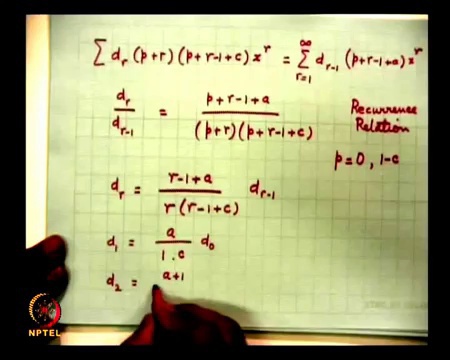 ∑ d_r (p+r)(p+r-1+c) x^r = ∑_{r=1}^{∞} d_{r-1} (p+r-1+a) x^r
d_r / d_{r-1} = (p+r-1+a) / ((p+r)(p+r-1+c))
Recurrence
Relation
p=0, 1-c
d_r = (r-1+a) / (r(r-1+c)) d_{r-1}
d_1 = a / (1 . c) d_0
d_2 = a+1
NPTEL